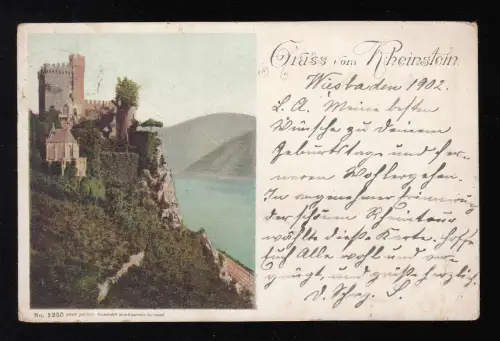 Gruss vom Rheinstein
Wiesbaden 1902.
L. A. Meine besten
Wünsche zu Deinem
Geburtstag und fer-
neren Wohlergehen.
In angenehmer Erinnerung
der schönen Rheintour
wählte diese Karte, hoffe
Euch Alle wohl und ver-
gnügt, und grüße herzlich.
D. S.
No. 1250